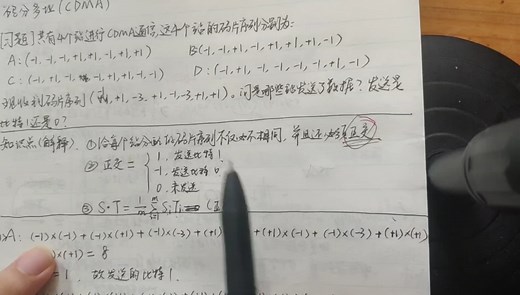 码分多址 (CDMA)
[问题] 共有4个站进行CDMA通信,这4个站的码片序列分别为:
A: (-1,-1,-1,+1,+1,-1,+1,+1) B(-1,-1,+1,-1,+1,+1,+1,-1)
C: (-1,+1,-1, -1,+1,+1,-1,-1) D: (-1,+1,-1,-1,-1,-1,+1,-1)
现收到码片序列 ( ,+1,-3,+1,-1,-3,+1,+1)。问是哪些站发送了数据?发送是
比特1还是0?
知识点(解释). ①给每个站分配的码片序列不仅必不相同,并且还必须正交
②正交 = 1. 发送比特1
-1. 发送比特0
0. 未发送
③ S·T = 1/m Σ SiTi
A: (-1)×(-1) + (-1)×(+1) + (-1)×(-3) + (+1) + (+1)×(-1) + (-1)×(-3) + (+1)×(+1)
×(+1) = 8
= 1. 故发送的比特1.